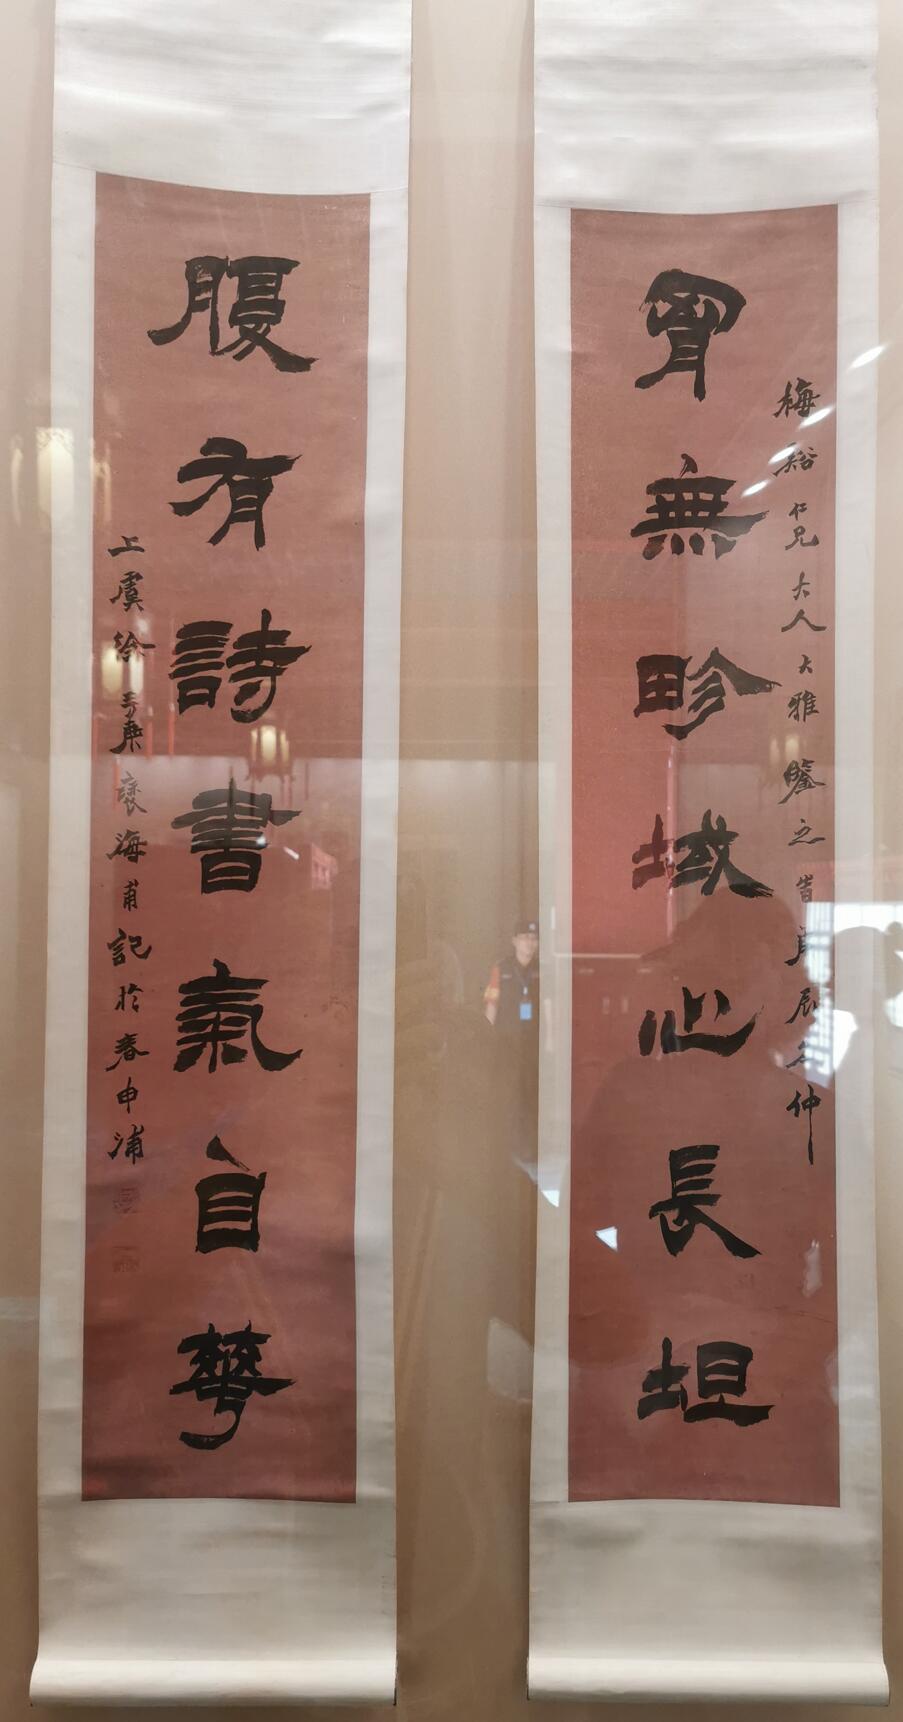 梅谿仁兄大人大雅鑒之 辰 仲
胷無畛域心長坦
腹有詩書氣自華
上虞徐三庚褎海甫記於春申浦